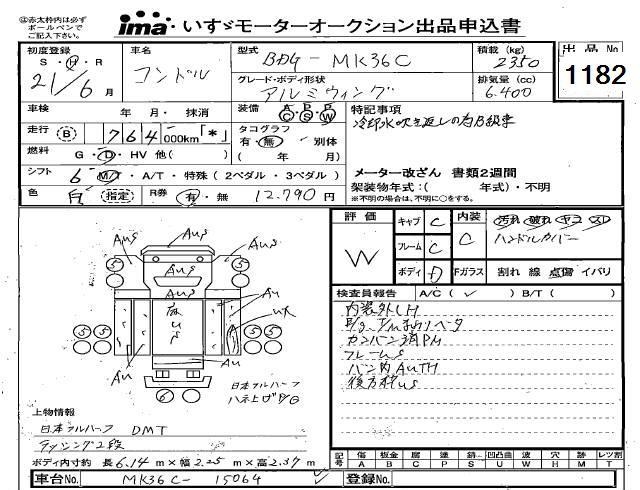 ㊟赤太枠内は必ず
ボールペンで
ご記入下さい。
ima いすゞモーターオークション出品申込書
初度登録
S・H・R
21/6月
車名
コンドル
型式
BDG-MK36C
積載 (kg)
2350
出品No
1182
グレード・ボディ形状
アルミウィング
排気量 (cc)
6.400
車検 年 月・抹消
装備 A C P S P W
特記事項
冷却水吹き返しの為B級車
走行 B 764000km「*」
タコグラフ
有・無 別体
( 年 月)
燃料 G・D・HV 他( )
メーター改ざん 書類2週間
シフト 6 M/T・A/T・特殊(2ペダル・3ペダル)
架装物年式:( 年式)・不明
※不明の場合は、不明に○をする。
色 白 指定 R券 有・無 12.790円
評価
W
キャブ C
フレーム C
ボディ D
内装 C
汚れ 破れ ヤコ スレ
ハンドルカバー
Fガラス 割れ 線 点傷 イバリ
検査員報告 A/C(✓) B/T( )
内装外LH
カンバン済PM
フレームS
バン内AUTH
後方枠US
AuS
AuS
AuS
AuS
Au
Au
Au
5
5
5
5
6
日本フルハーフ
ハネ上げP/G
上物情報
日本フルハーフ DMT
ラッシング2段
ボディ内寸約 長6.14m×幅2.25m×高2.37m
記号 傷A 板金B 腐C 塗P 錆S 凹凸曲U 波W 穴H 無M レツ割T
車台No. MK36C-15064
登録No.